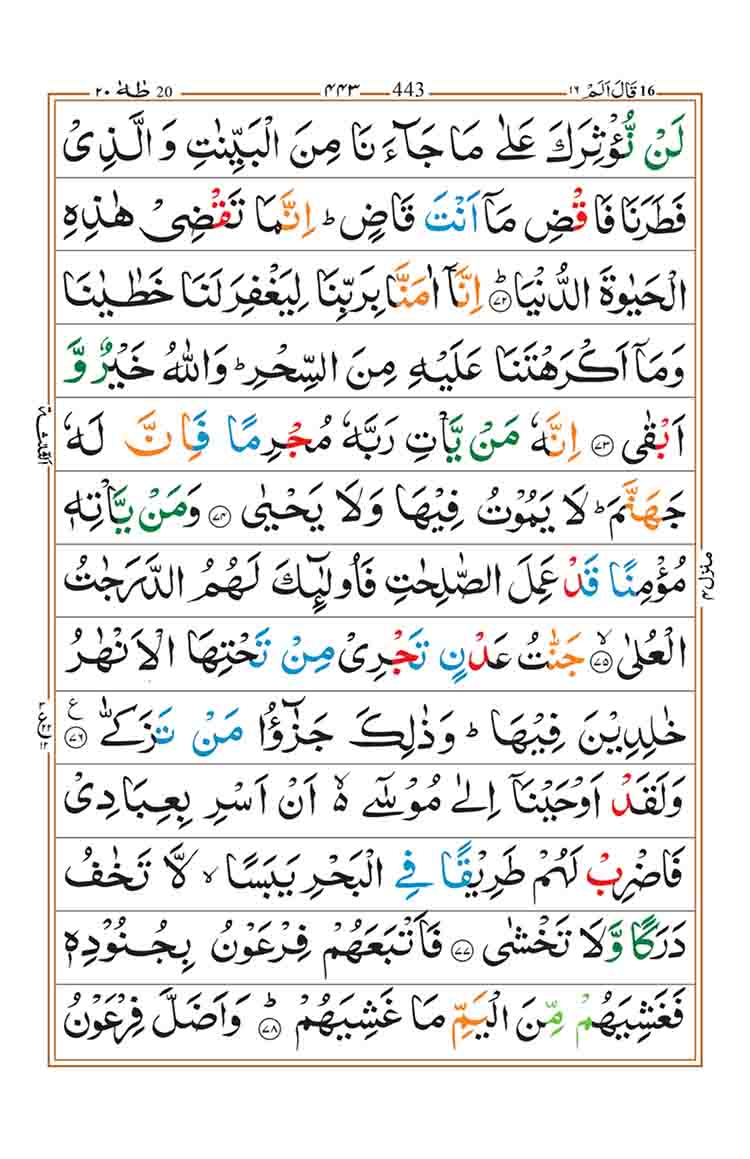 قَالَ اَلَمْ ١٦ 16 443 ۴۴۳ 20 طٰهٰ ٢٠
لَنْ نُّؤْثِرَكَ عَلٰى مَا جَآءَنَا مِنَ الْبَيِّنٰتِ وَالَّذِىْ
فَطَرَنَا فَاقْضِ مَاۤ اَنْتَ قَاضٍ ؕ اِنَّمَا تَقْضِىْ هٰذِهِ
الْحَيٰوةَ الدُّنْيَا ؕ ﴿۷۲﴾ اِنَّاۤ اٰمَنَّا بِرَبِّنَا لِيَغْفِرَ لَنَا خَطٰيٰنَا
وَمَاۤ اَكْرَهْتَنَا عَلَيْهِ مِنَ السِّحْرِ ؕ وَاللّٰهُ خَيْرٌ وَّ
اَبْقٰى ﴿۷۳﴾ اِنَّهٗ مَنْ يَّاْتِ رَبَّهٗ مُجْرِمًا فَاِنَّ لَهٗ
جَهَنَّمَ ؕ لَا يَمُوْتُ فِيْهَا وَلَا يَحْيٰى ﴿۷۴﴾ وَمَنْ يَّاْتِهٖ
مُؤْمِنًا قَدْ عَمِلَ الصّٰلِحٰتِ فَاُولٰٓئِكَ لَهُمُ الدَّرَجٰتُ
الْعُلٰى ۙ ﴿۷۵﴾ جَنّٰتُ عَدْنٍ تَجْرِىْ مِنْ تَحْتِهَا الْاَنْهٰرُ
خٰلِدِيْنَ فِيْهَا ؕ وَذٰلِكَ جَزٰٓؤُا مَنْ تَزَكّٰى ﴿۷۶﴾ ع
وَلَقَدْ اَوْحَيْنَاۤ اِلٰى مُوْسٰٓى ۙ اَنْ اَسْرِ بِعِبَادِىْ
فَاضْرِبْ لَهُمْ طَرِيْقًا فِى الْبَحْرِ يَبَسًا ۙ لَّا تَخٰفُ
دَرَكًا وَّلَا تَخْشٰى ﴿۷۷﴾ فَاَتْبَعَهُمْ فِرْعَوْنُ بِجُنُوْدِهٖ
فَغَشِيَهُمْ مِّنَ الْيَمِّ مَا غَشِيَهُمْ ؕ ﴿۷۸﴾ وَاَضَلَّ فِرْعَوْنُ
الثلثة
منزل ۴